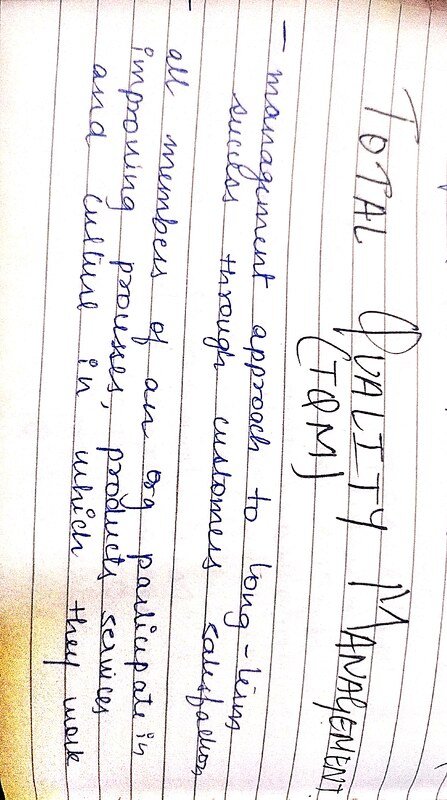 TOTAL QUALITY MANAGEMENT
(TQM)
- management approach to long-term
success through customers satisfaction
- all members of an org participate in
improving processes, products services
and culture in which they work